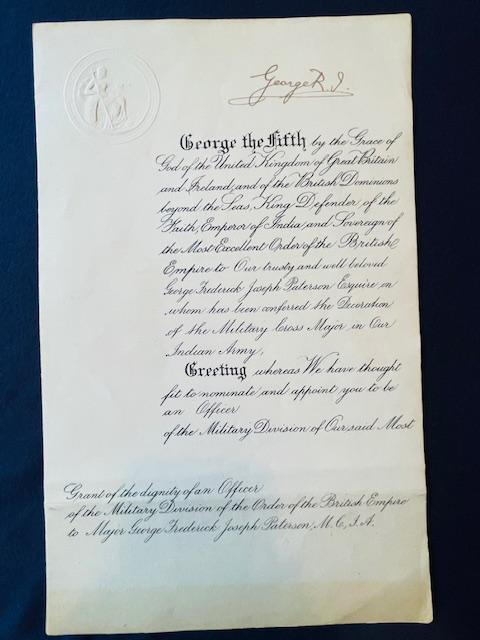 George R. I.
George the Fifth by the Grace of
God of the United Kingdom of Great Britain
and Ireland, and of the British Dominions
beyond the Seas, King Defender of the
Faith, Emperor of India, and Sovereign of
the Most Excellent Order of the British
Empire to Our trusty and well beloved
George Frederick Joseph Paterson Esquire in
whom has been conferred the Decoration
of the Military Cross Major in Our
Indian Army,
Greeting whereas We have thought
fit to nominate and appoint you to be
an Officer
of the Military Division of Our said Most
Grant of the dignity of an Officer
of the Military Division of the Order of the British Empire
to Major George Frederick Joseph Paterson, M.C., I.A.